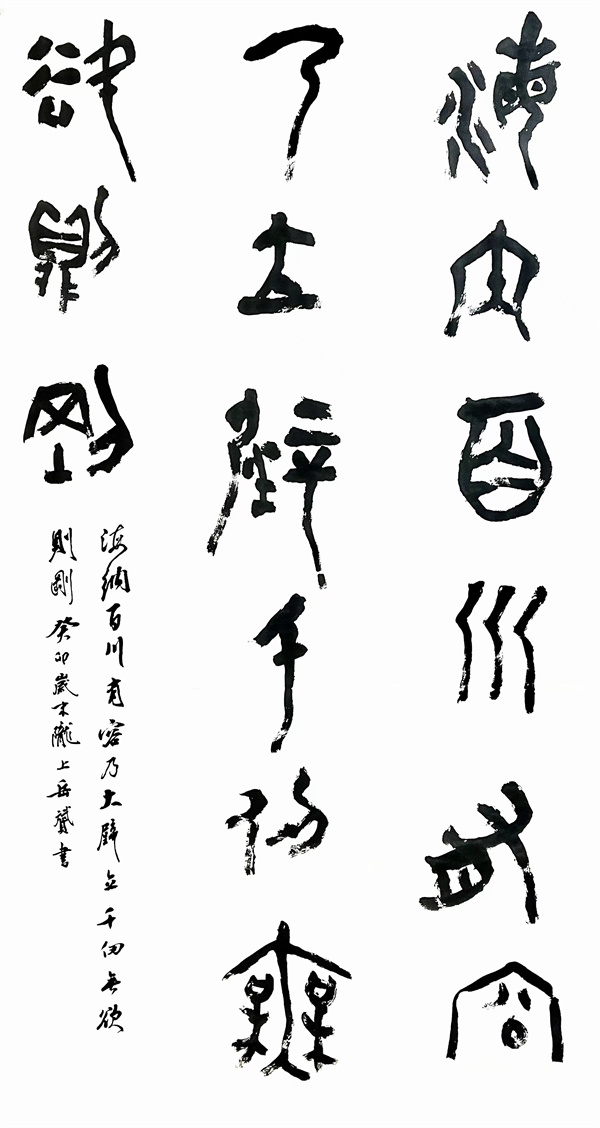 海内百川有容
乃大壁千仞無
欲則剛
海納百川有容乃大壁立千仞無欲
則剛 癸卯歲末隴上岳贇書